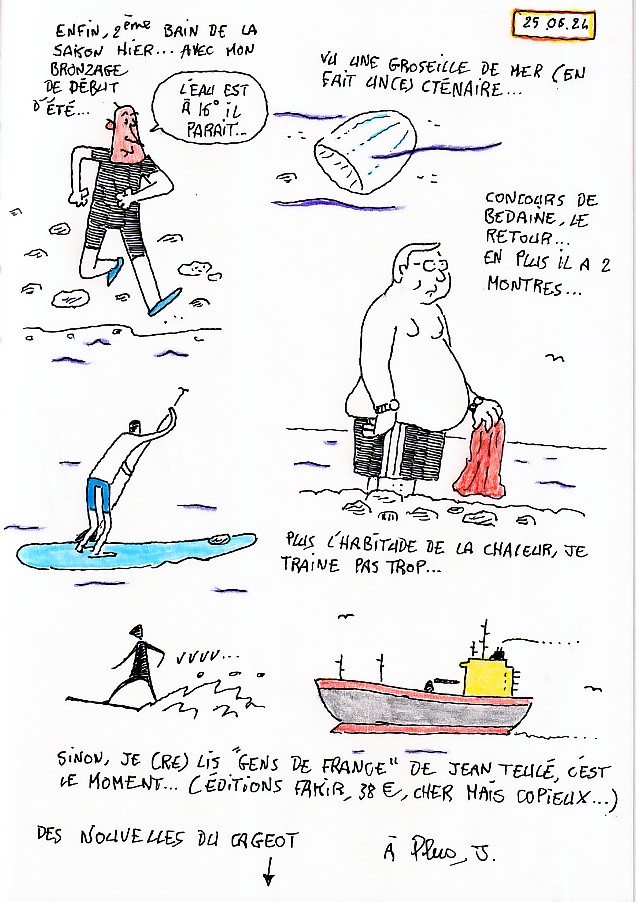 25.06.24
ENFIN, 2ème BAIN DE LA
SAISON HIER... AVEC MON
BRONZAGE
DE DÉBUT
D'ÉTÉ...
L'EAU EST
À 16° IL
PARAIT...
VU UNE GROSEILLE DE MER (EN
FAIT UN(E) CTÉNAIRE...
CONCOURS DE
BEDAINE, LE
RETOUR...
EN PLUS IL A 2
MONTRES...
PLUS L'HABITUDE DE LA CHALEUR, JE
TRAINE PAS TROP...
VVVV...
SINON, JE (RE) LIS "GENS DE FRANCE" DE JEAN TEULÉ, C'EST
LE MOMENT... (ÉDITIONS FAKIR, 38 €, CHER MAIS COPIEUX...)
DES NOUVELLES DU CAGEOT
À Plus, J.